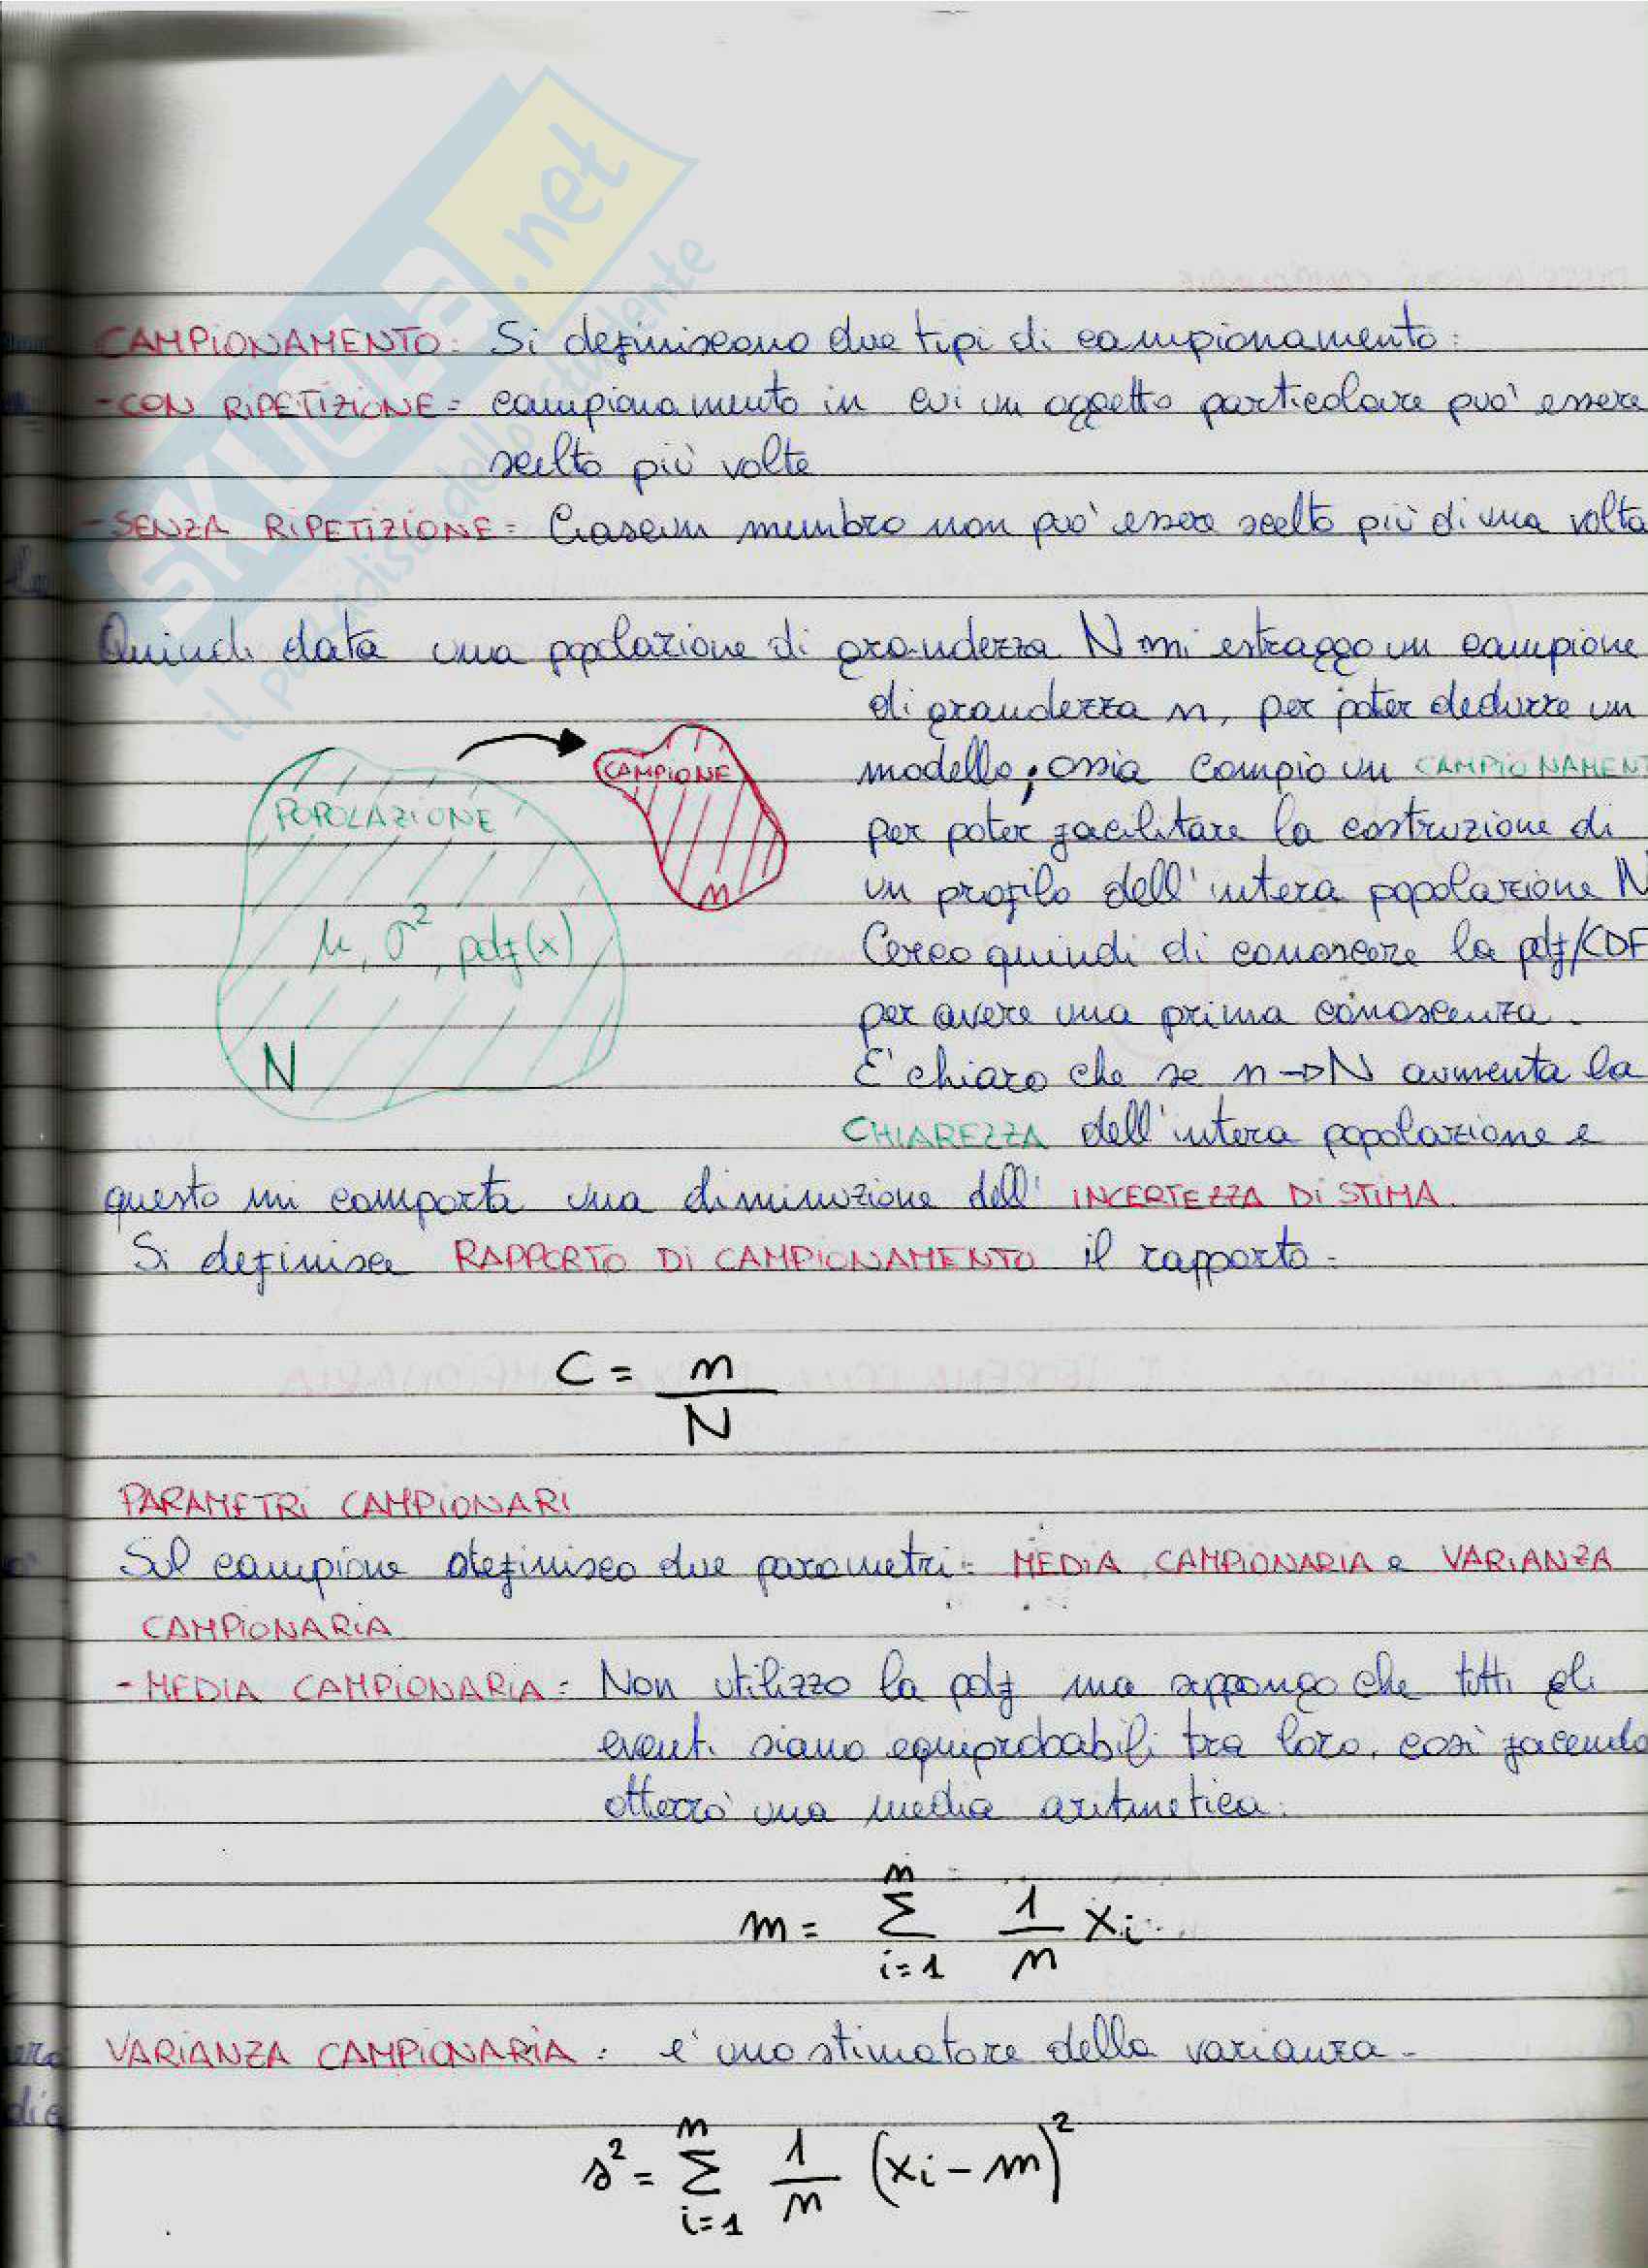 SKUOLA.net
il paradiso dello studente
CAMPIONAMENTO: Si definiscono due tipi di campionamento:
- CON RIPETIZIONE = campionamento in cui un oggetto particolare può essere
scelto più volte
- SENZA RIPETIZIONE = Ciascun membro non può essere scelto più di una volta
Quindi data una popolazione di grandezza N mi estraggo un campione
di grandezza n, per poter dedurre un
modello; ossia compio un CAMPIONAMENT
per poter facilitare la costruzione di
un profilo dell'intera popolazione N
Cerco quindi di conoscere la pdf/CDF
per avere una prima conoscenza.
E' chiaro che se n→N aumenta la
CHIAREZZA dell'intera popolazione e
POPOLAZIONE
μ, σ², pdf(x)
N
CAMPIONE
n
questo mi comporta una diminuzione dell' INCERTEZZA DI STIMA.
Si definisce RAPPORTO DI CAMPIONAMENTO il rapporto =
C = n/N
PARAMETRI CAMPIONARI
Sul campione definisco due parametri = MEDIA CAMPIONARIA e VARIANZA
CAMPIONARIA
- MEDIA CAMPIONARIA = Non utilizzo la pdf ma suppongo che tutti gli
eventi siano equiprobabili tra loro, così facendo
otterrò una media aritmetica.
m = Σ_{i=1}^{n} 1/n xi
VARIANZA CAMPIONARIA : e' uno stimatore della varianza -
s² = Σ_{i=1}^{n} 1/n (xi - m)²